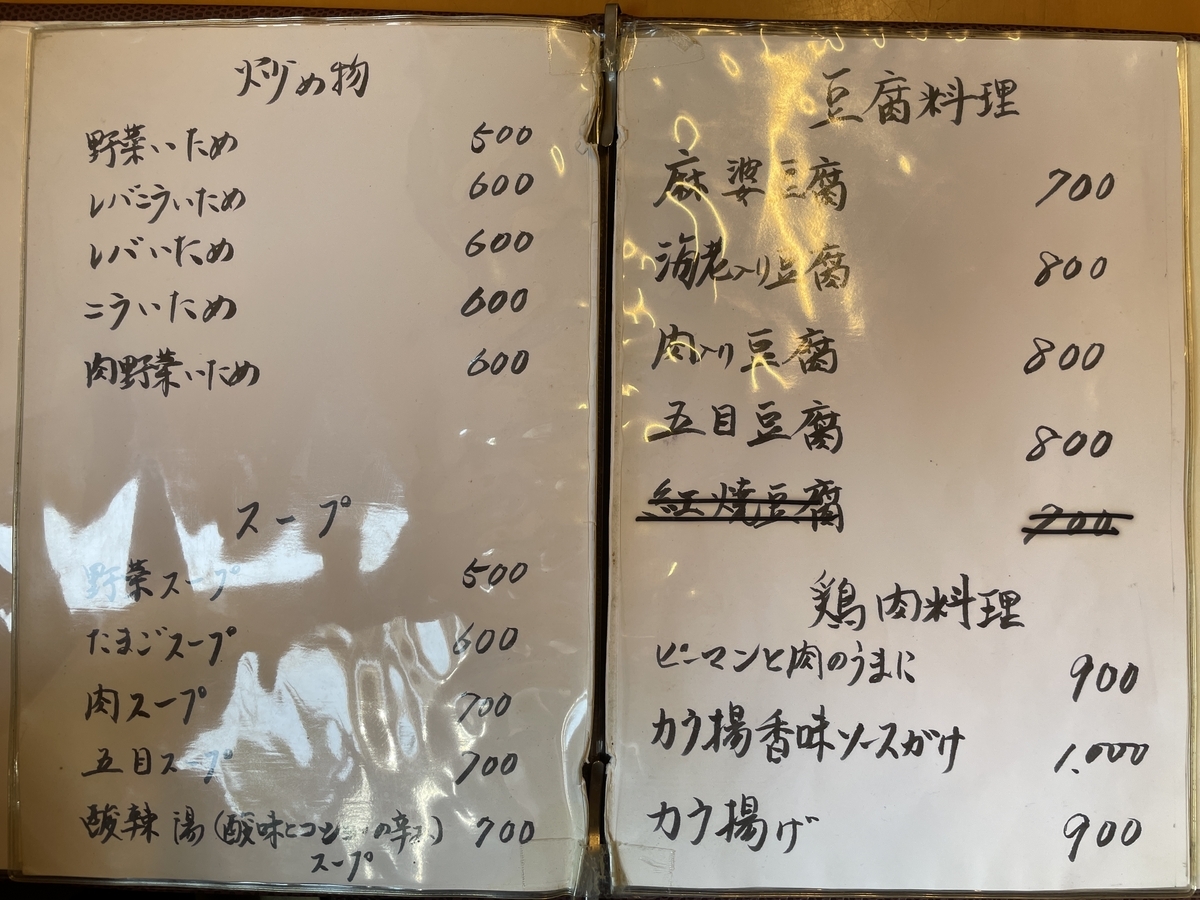 炒め物
野菜いため 500
レバニラいため 600
レバいため 600
ニラいため 600
肉野菜いため 600
スープ
野菜スープ 500
たまごスープ 600
肉スープ 700
五目スープ 700
酸辣湯(酸味とコショ の辛 ) 700
スープ
豆腐料理
麻婆豆腐 700
海老入り豆腐 800
肉入り豆腐 800
五目豆腐 800
紅焼豆腐 700
鶏肉料理
ピーマンと肉のうまに 900
カラ揚香味ソースがけ 1.000
カラ揚げ 900